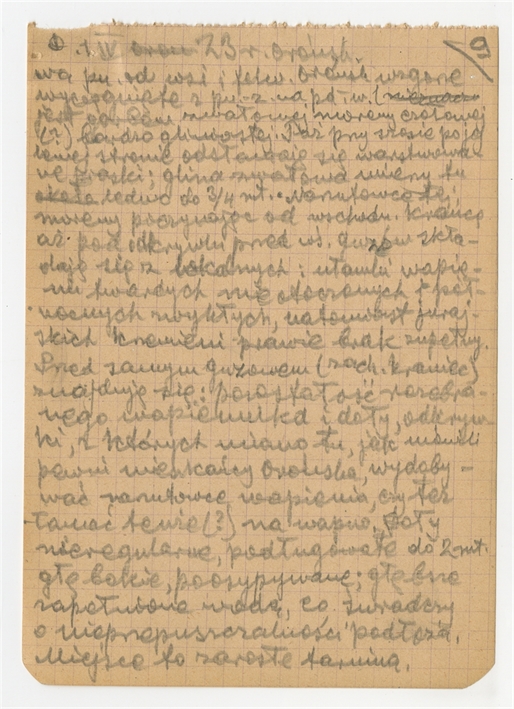 1 IV 23 r. Orońsk. 9
wą pn. od wsi i folw. Orońsk wzgórze
wyciągnięte z pn.-z. na pd. w.
jest garbem zwałowej moreny czołowej
(?) bardzo gliniastej. Tuż przy szosie po jej
lewej stronie odsłaniają się warstwowa-
ne piaski; glina zwałowa mierzy tu
ledwo do 3/4 mt. Narzutowce tej
moreny począwszy od wschodu. krańca
aż pod odkrywki przed ws. Guzów skła-
dają się z lokalnych: ułamki wapie-
ni twardych nie otoczonych i pół-
nocnych zwykłych, natomiast juraj-
skich krzemieni prawie brak zupełny.
Przed samym Guzowem (zach. kraniec)
znajdują się: pozostałość rozebra-
nego wapiennika i doły, odkryw-
ki, z których miano tu, jak mówili
pewni mieszkańcy Orońska, wydoby-
wać narzutowce wapienia, czy też
łamać tenże (?) na wapno. Doły
nieregularne, podługowate do 2 mt.
głębokie, poosypywane; głębsze
zapełnione wodą, co świadczy
o nieprzepuszczalności podłoża.
Miejsce to zarosłe tarniną.